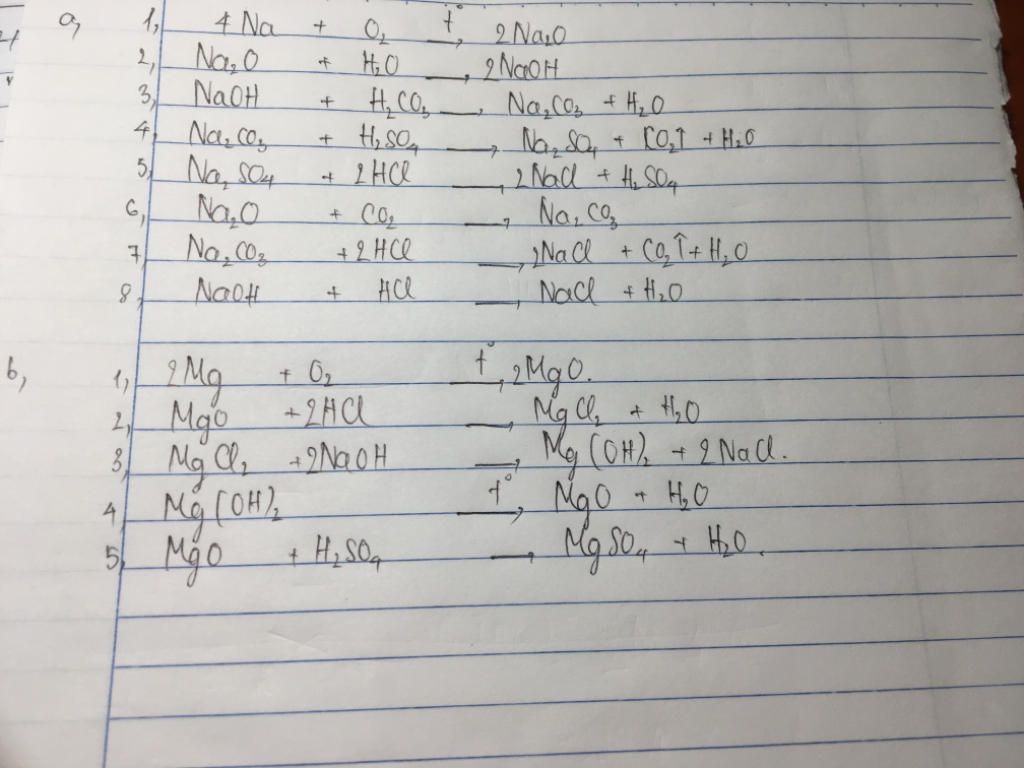 a, 1, 4Na + O₂ t° → 2Na₂O
2, Na₂O + H₂O → 2NaOH
3, NaOH + H₂CO₃ → Na₂CO₃ + H₂O
4, Na₂CO₃ + H₂SO₄ → Na₂SO₄ + CO₂↑ + H₂O
5, Na₂SO₄ + 2HCl → 2NaCl + H₂SO₄
6, Na₂O + CO₂ → Na₂CO₃
7, Na₂CO₃ + 2HCl → 2NaCl + CO₂↑ + H₂O
8, NaOH + HCl → NaCl + H₂O
b, 1, 2Mg + O₂ t° → 2MgO.
2, MgO + 2HCl → MgCl₂ + H₂O
3, MgCl₂ + 2NaOH → Mg(OH)₂ + 2NaCl.
4, Mg(OH)₂ t° → MgO + H₂O
5, MgO + H₂SO₄ → MgSO₄ + H₂O.